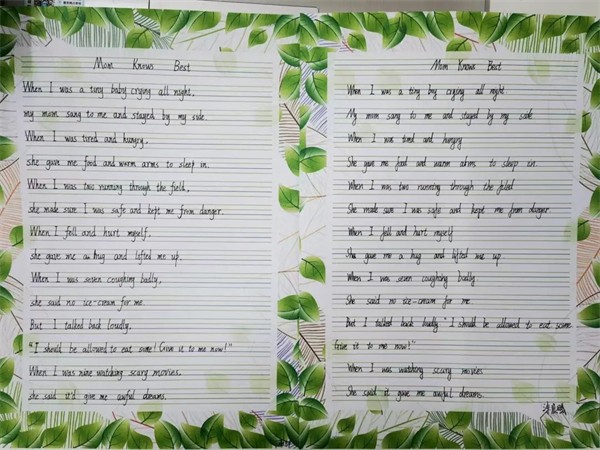 Mom Knows Best
When I was a tiny baby crying all night,
my mom sang to me and stayed by my side.
When I was tired and hungry,
she gave me food and warm arms to sleep in.
When I was two running through the field,
she made sure I was safe and kept me from danger.
When I fell and hurt myself,
she gave me a hug and lifted me up.
When I was seven coughing badly,
she said no ice-cream for me.
But I talked back loudly,
"I should be allowed to eat some! Give it to me now!"
When I was nine watching scary movies,
she said it'd give me awful dreams.
Mom Knows Best
When I was a tiny boy crying all night
My mom sang to me and stayed by my side
When I was tired and hungry
She gave me food and warm arms to sleep in.
When I was two running through the
She made sure I was safe and kept me from danger.
When I fell and hurt myself
She gave me a hug and lifted me up
When I was seven coughing badly
She said no ice-cream for me
But I talked back loudly "I should be allowed to eat some
Give it to me now!"
When I was watching scary movies
She said it gave me awful dreams.